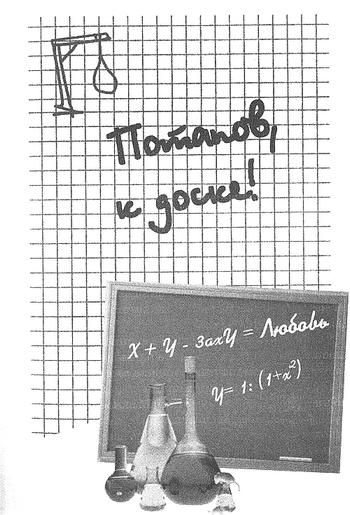 Потапов,
к доске!
X + Y - 3axY = Любовь
Y = 1: (1+x²)